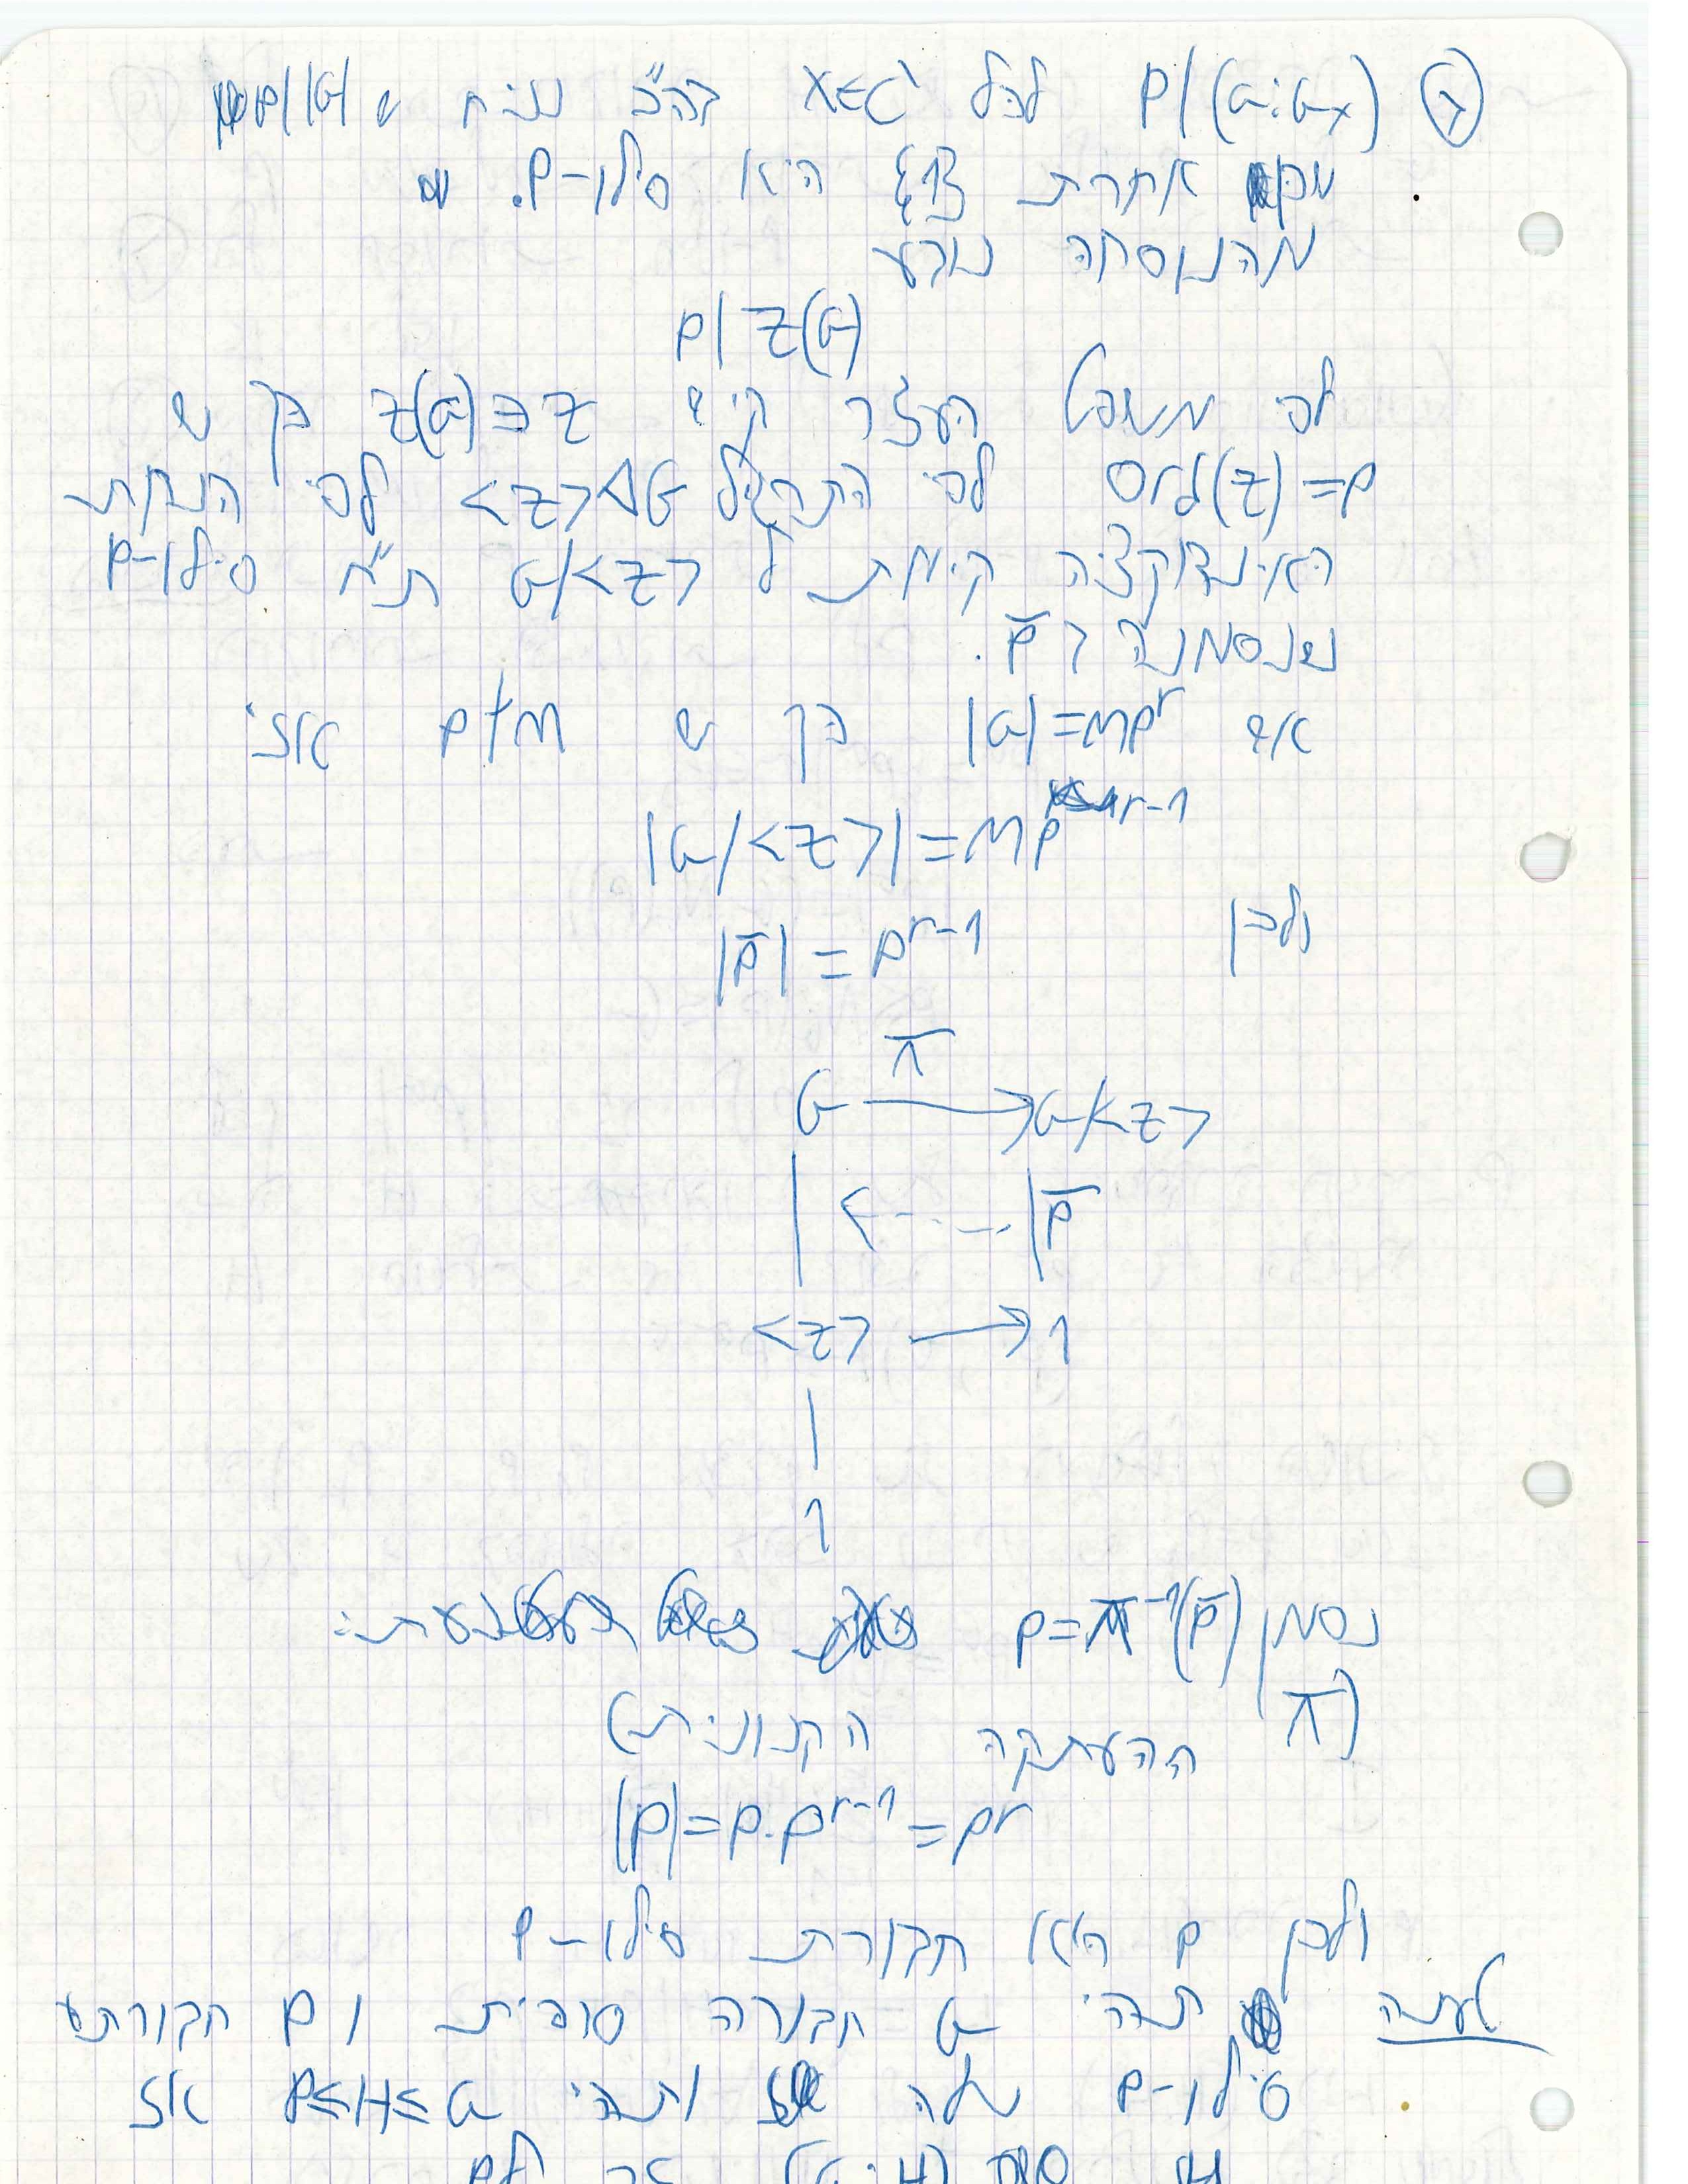 ב) p|(G:Gx) לכל x∈G' בה״כ נניח ש p||G|
אחרת {1} היא סילו-p.
מהנוסחה נובע
p|Z(G)
לפי משפט העזר קיש z∈Z(G) כך ש
Ord(z)=p לפי התרגיל <z>◁G לפי הנחת
האינדוקציה קימת ל G/<z> ת״ח סילו-p
שנסמנה ב P̄.
אם |G|=mp^r כך ש p∤m אזי
|G/<z>|=mp^{r-1}
ולכן |P̄|=p^{r-1}
G →π G/<z>
| <---- |P̄
<z> → 1
|
1
נסמן P=π^{-1}(P̄)
(π
ההעתקה הקנונית)
|P|=p·p^{r-1}=p^r
ולכן P היא חבורת סילו-p
טענה תהי G חבורה סופית ו P חבורת
סילו-p שלה ותהי P≤H≤G אז